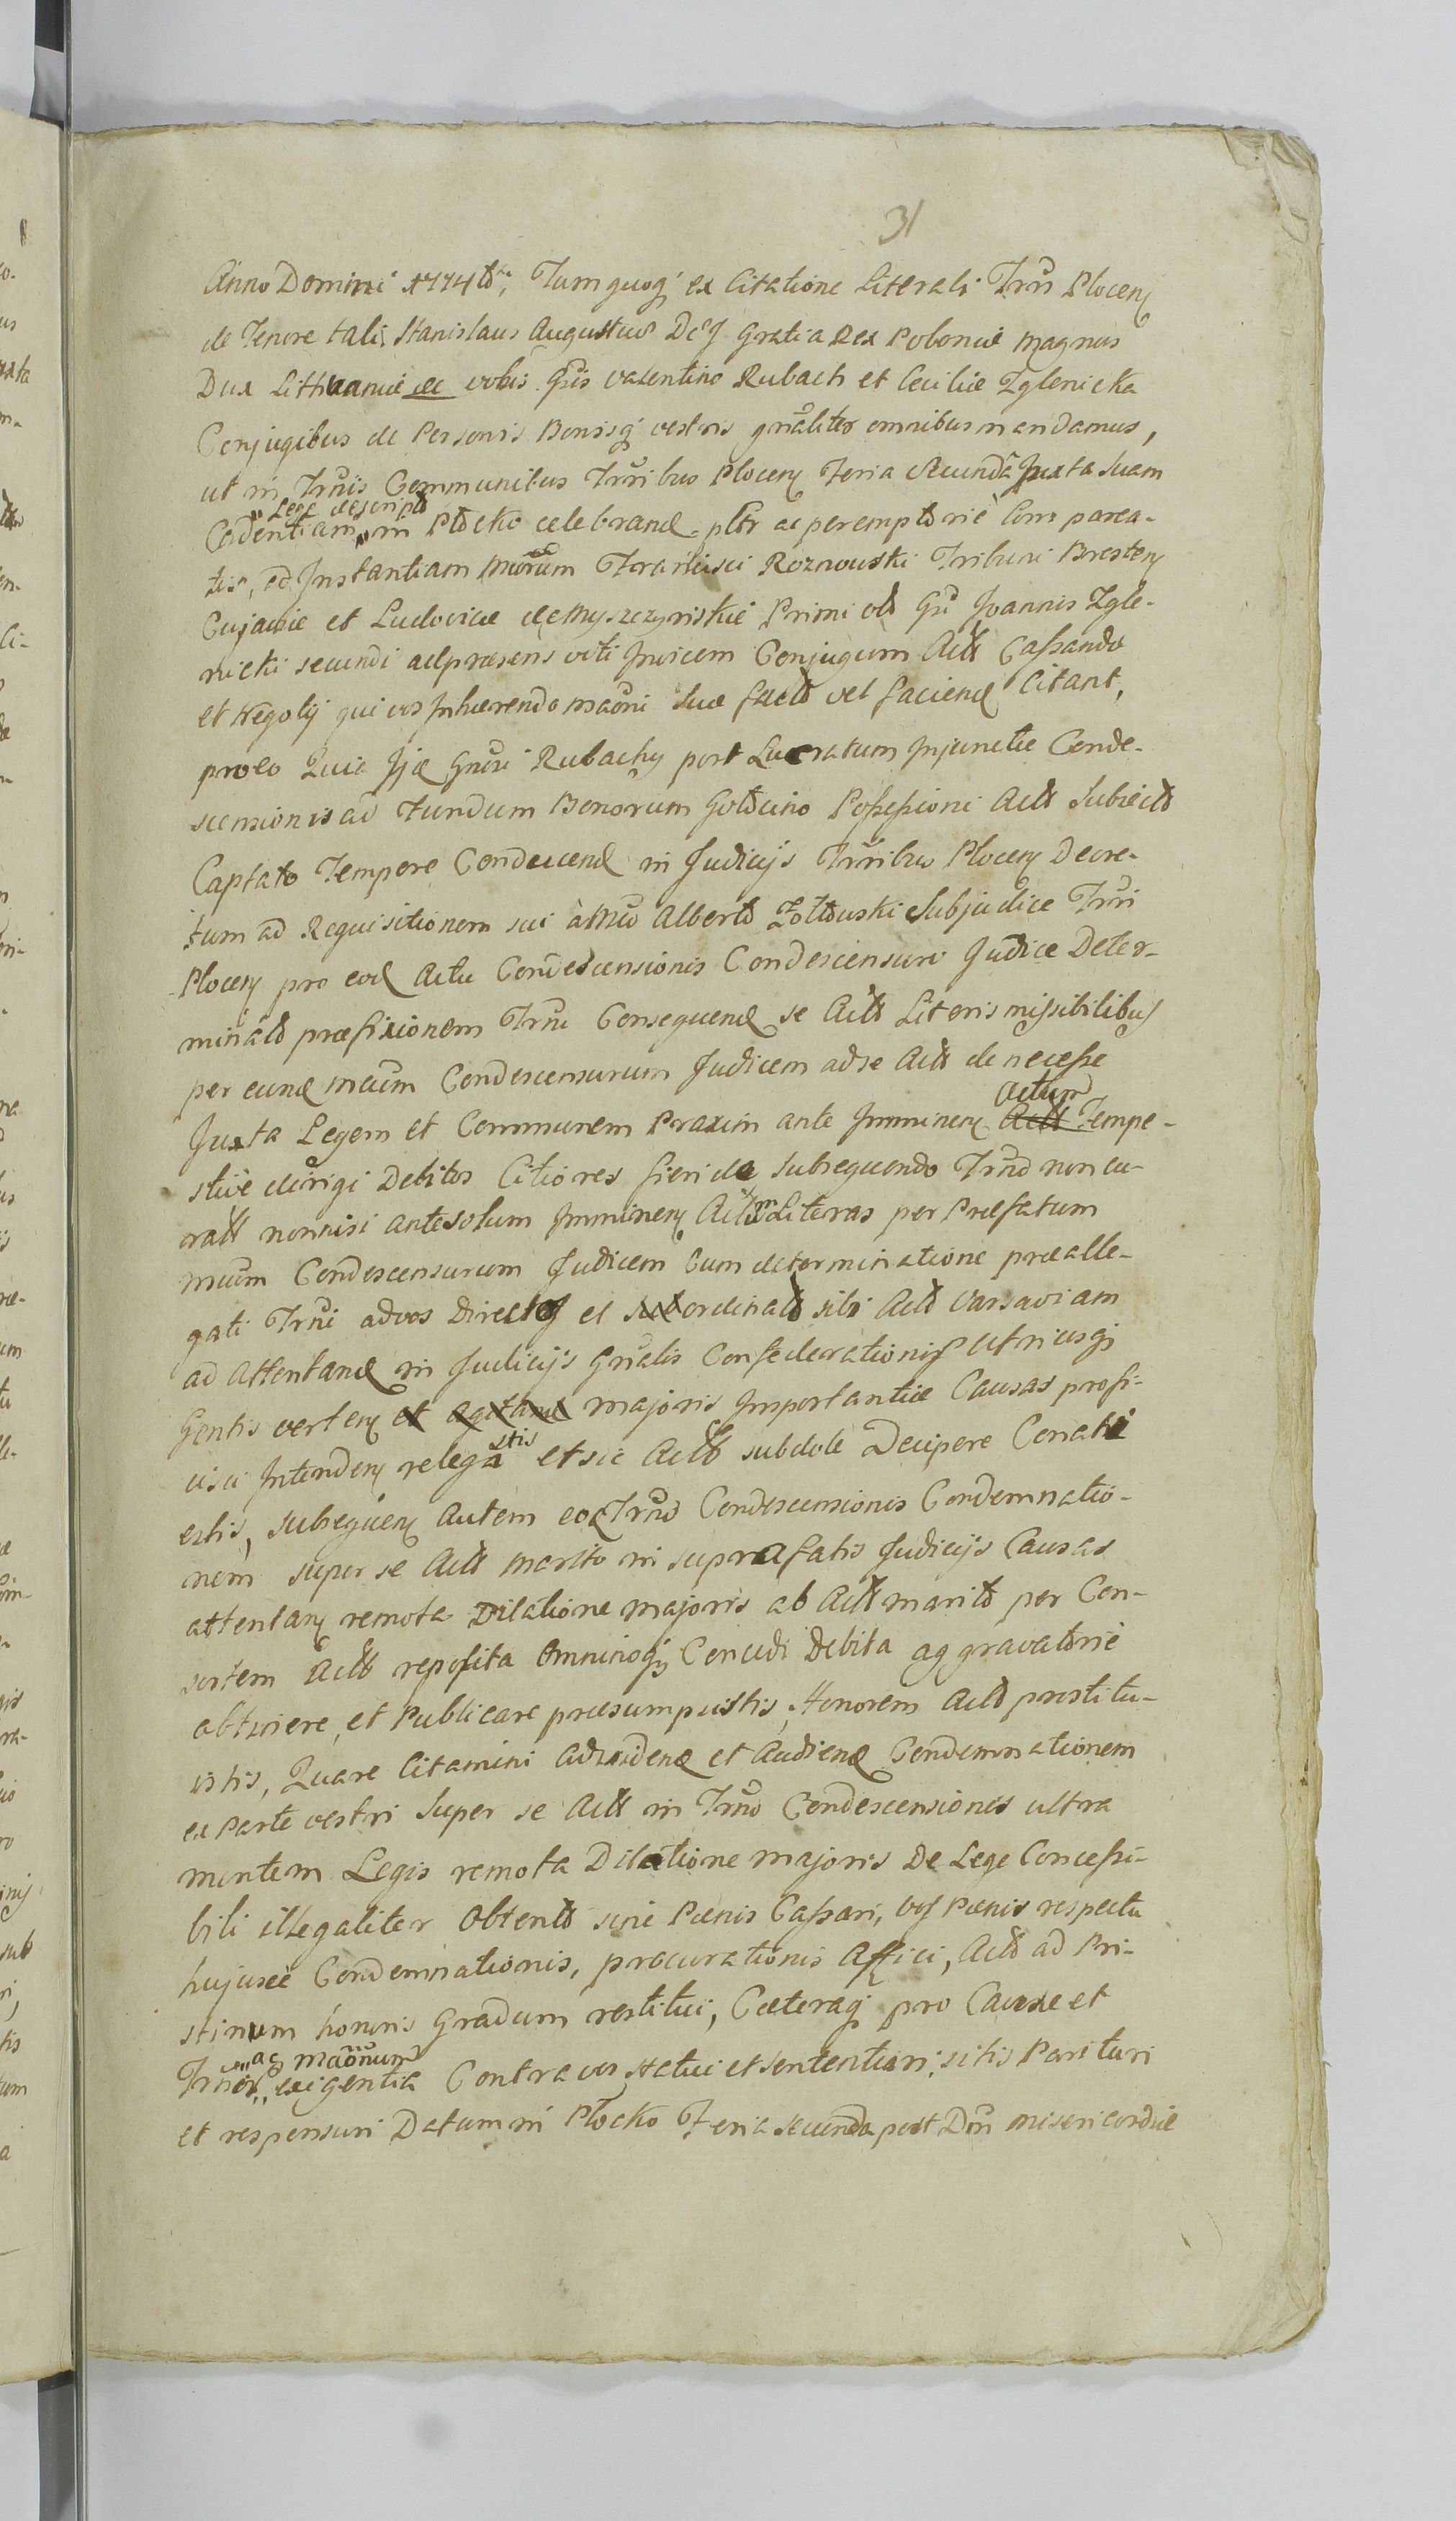 31
Anno Domini 1774to, Tum quoq ex Citatione Literali Trri Plocen
de Tenore tali Stanislaus Augustus Dei Gratia Rex Poloniæ Magnus
Dux Lithuaniæ &c vobis Gsis Valentino Rubach et Ceciliæ Zglenicka
Conjugibus de Personis Bonisq vestris gnaliter omnibus mandamus,
ut in Trnis Communibus Trribus Plocen Feria Secunda Juxta Suam
Lege descripto
Cadentiam in Płocko celebrand pltr ac peremptorie Comparea-
tis, ad Instantiam Mcorum Francisci Roznowski Tribuni Bresten
Cujaviæ et Ludovicæ de Myszczynskie Primi olo Gsi Joannis Zgle-
nicki secundi adpræsens voti Invicem Conjugum Acto Cassando
et Negoty qui vos Inhærendo maoni Suæ facto vel faciend Citant,
pro eo Quia Ijd Gnosi Rubachy post Lucratum Injunctæ Conde-
scensionis ad Fundum Bonorum Gołocino Possessioni Acto Subiecto
Captato Tempore Conducend in Judicijs Trribus Plocen Decre-
tum ad Requisitionem sui à Mco Alberto Zołtowski Subjudice Trri
Plocen pro eod Actu Condescensionis Condescensuro Judice Deter-
minato præfixionem Trni Consequend se Acto Literis missibilibus
per eund mcum Condescensurum Judicem adse Acto de necesse
Actum
Juxta Legem et Communem Praxim ante Imminen Acto Tempe-
stive dirigi Debitos Citiores fieri de Subsequendo Trno non cu-
rasti nonnisi ante solum Imminen Actum Literas per Præfatum
mcum Condescensurum Judicem Cum determinatione præalle-
gati Trni advos Directos et subordinato sibi Acto Varsaviam
ad Attentand in Judicijs Gnalis Confederationis Utriusq
Gentis verten et agitand majoris Importantiæ Causas profi-
stis
cisci Intenden relega et sic Acto subdole Decipere Conati
estis, subsequen Autem eod Trno Condescensionis Condemnatio-
nem super se Acto Marito in suprafatis Judicijs Causas
attentan remota Dilatione majoris ab Acto marito per Con-
sortem Acto reposita Omninoq Concedi Debita aggravatorie
obtinere, et Publicare præsumpsistis, Honorem Acto prostitu-
istis, Quare Citamini Advidend et Audiend Condemnationem
ex Parte vestri Super se Acto in Trno Condescensiones ultra
mentem Legis remota Dilatione majoris De Lege Concessi-
bili illegaliter Obtento sine Pænis Cassari, vos Pænis respectu
hujusce Condemnationis, procurationis Affici, Acto ad Pri-
stinum honoris Gradum restitui, Cæteraq pro Causæ et
ac maonum
Trnor exigentia Contra vos statui et sententiari, sitis Parituri
et responsuri Datum in Płocko Feria secunda post Dni misericordiæ